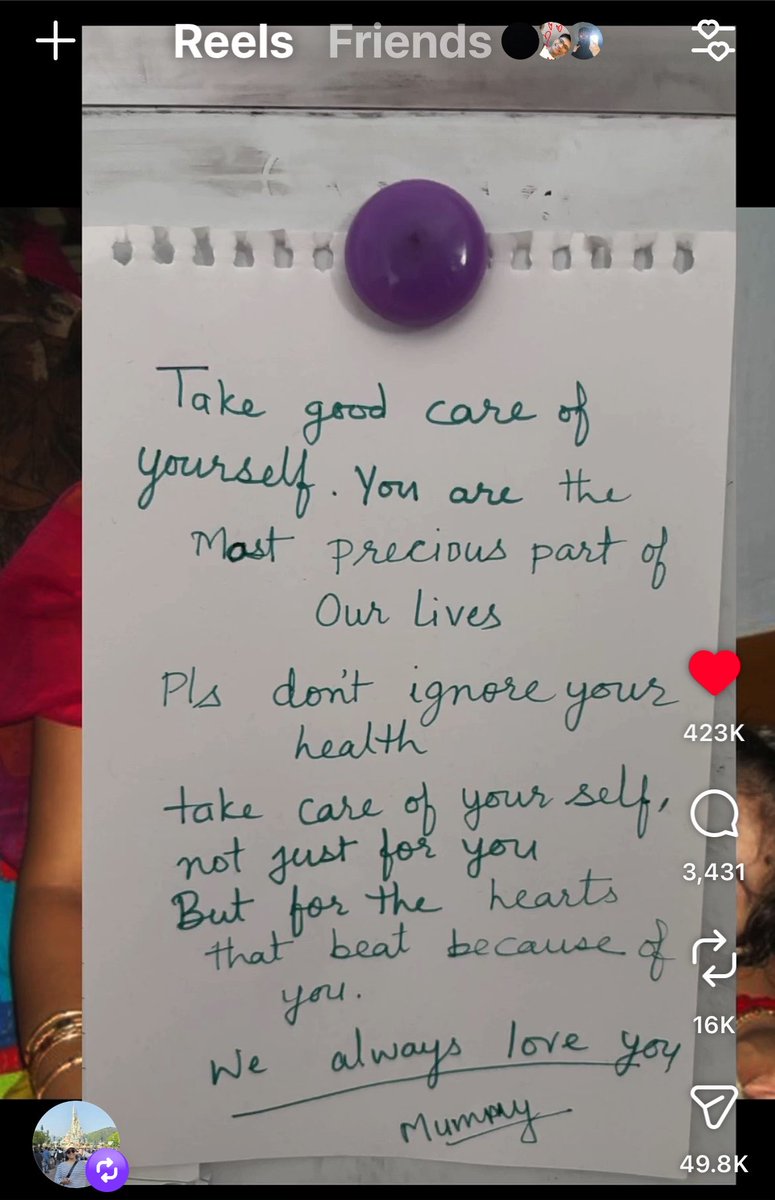 Reels Friends
Take good care of
yourself. You are the
Most precious part of
Our Lives
Pls don't ignore your
health
take care of your self,
not just for you
But for the hearts
that beat because of
you.
We always love you
Mummy
423K
3,431
16K
49.8K